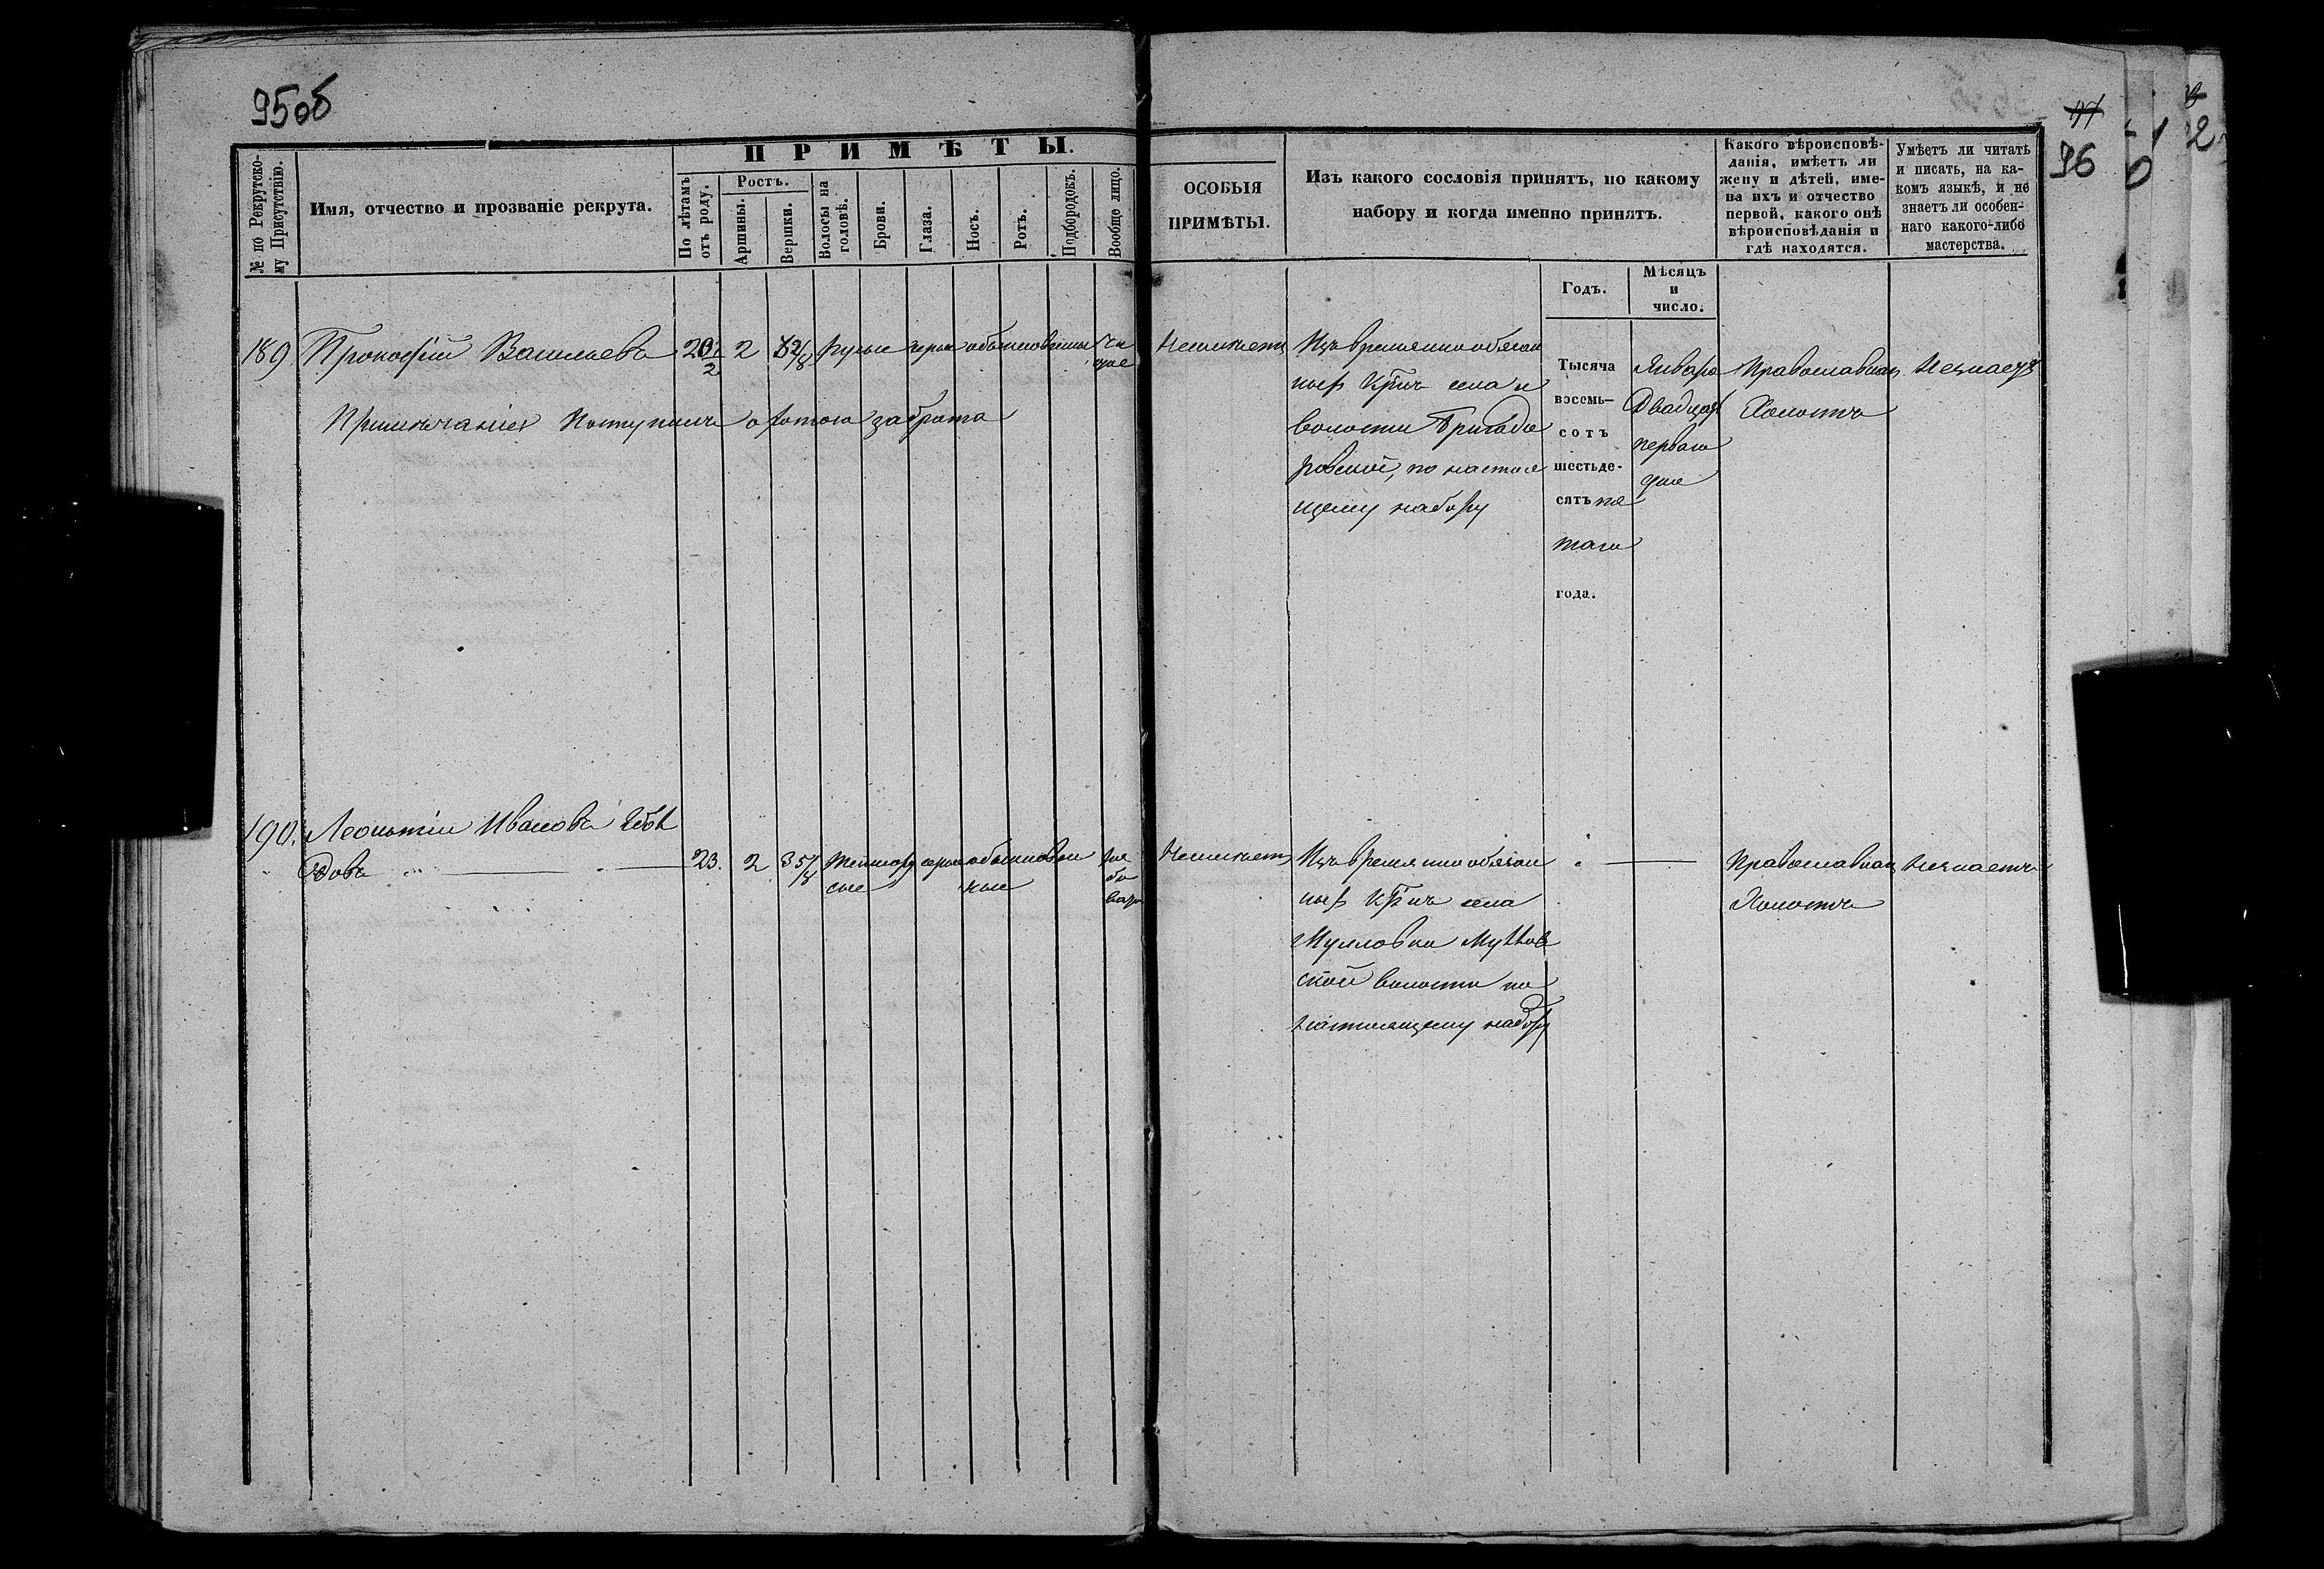 95об
97
96
1
2
0
№ по Рекрутско-
му Присутствію.
Имя, отчество и прозваніе рекрута.
ПРИМѢТЫ.
По лѣтамъ
отъ роду.
Ростъ.
Аршины.
Вершки.
Волосы на
головѣ.
Брови.
Глаза.
Носъ.
Ротъ.
Подбородокъ.
Вообще лицо.
ОСОБЫЯ
ПРИМѢТЫ.
Изъ какого сословія принятъ, по какому
набору и когда именно принятъ.
Какого вѣроисповѣ-
данія, имѣетъ ли
жену и дѣтей, име-
на ихъ и отчество
первой, какого онѣ
вѣроисповѣданія и
гдѣ находятся.
Умѣетъ ли читать
и писать, на ка-
комъ языкѣ, и не
знаетъ ли особен-
наго какого-либо
мастерства.
Годъ.
Мѣсяцъ
и
число.
189 Прокофій Васильевъ 20 1/2 2 русые серые обыкновенны чи
стое
Неимѣетъ
Примѣчаніе Поступилъ охотою за брата
Изъ временно обязан
ныхъ Кр̃нъ села и
волости Бригади
ровской, по настоя
щему набору
Тысяча
восемь-
сотъ
шестьде-
сятъ пя
таго
года.
Января
Двадцать
перваго
дня
Православнаго
Холостъ
Незнаетъ
190. Леонтій Ивановъ
довъ 23. 2 3 5/8 темнору серые обыкновен
сые ные
ря
бо
ватое
Неимѣетъ
Изъ временно обязан
ныхъ Кр̃нъ села
Мулловки Муллов
ской волости по
настоящему набору
Православнаго
Холостъ
Незнаетъ